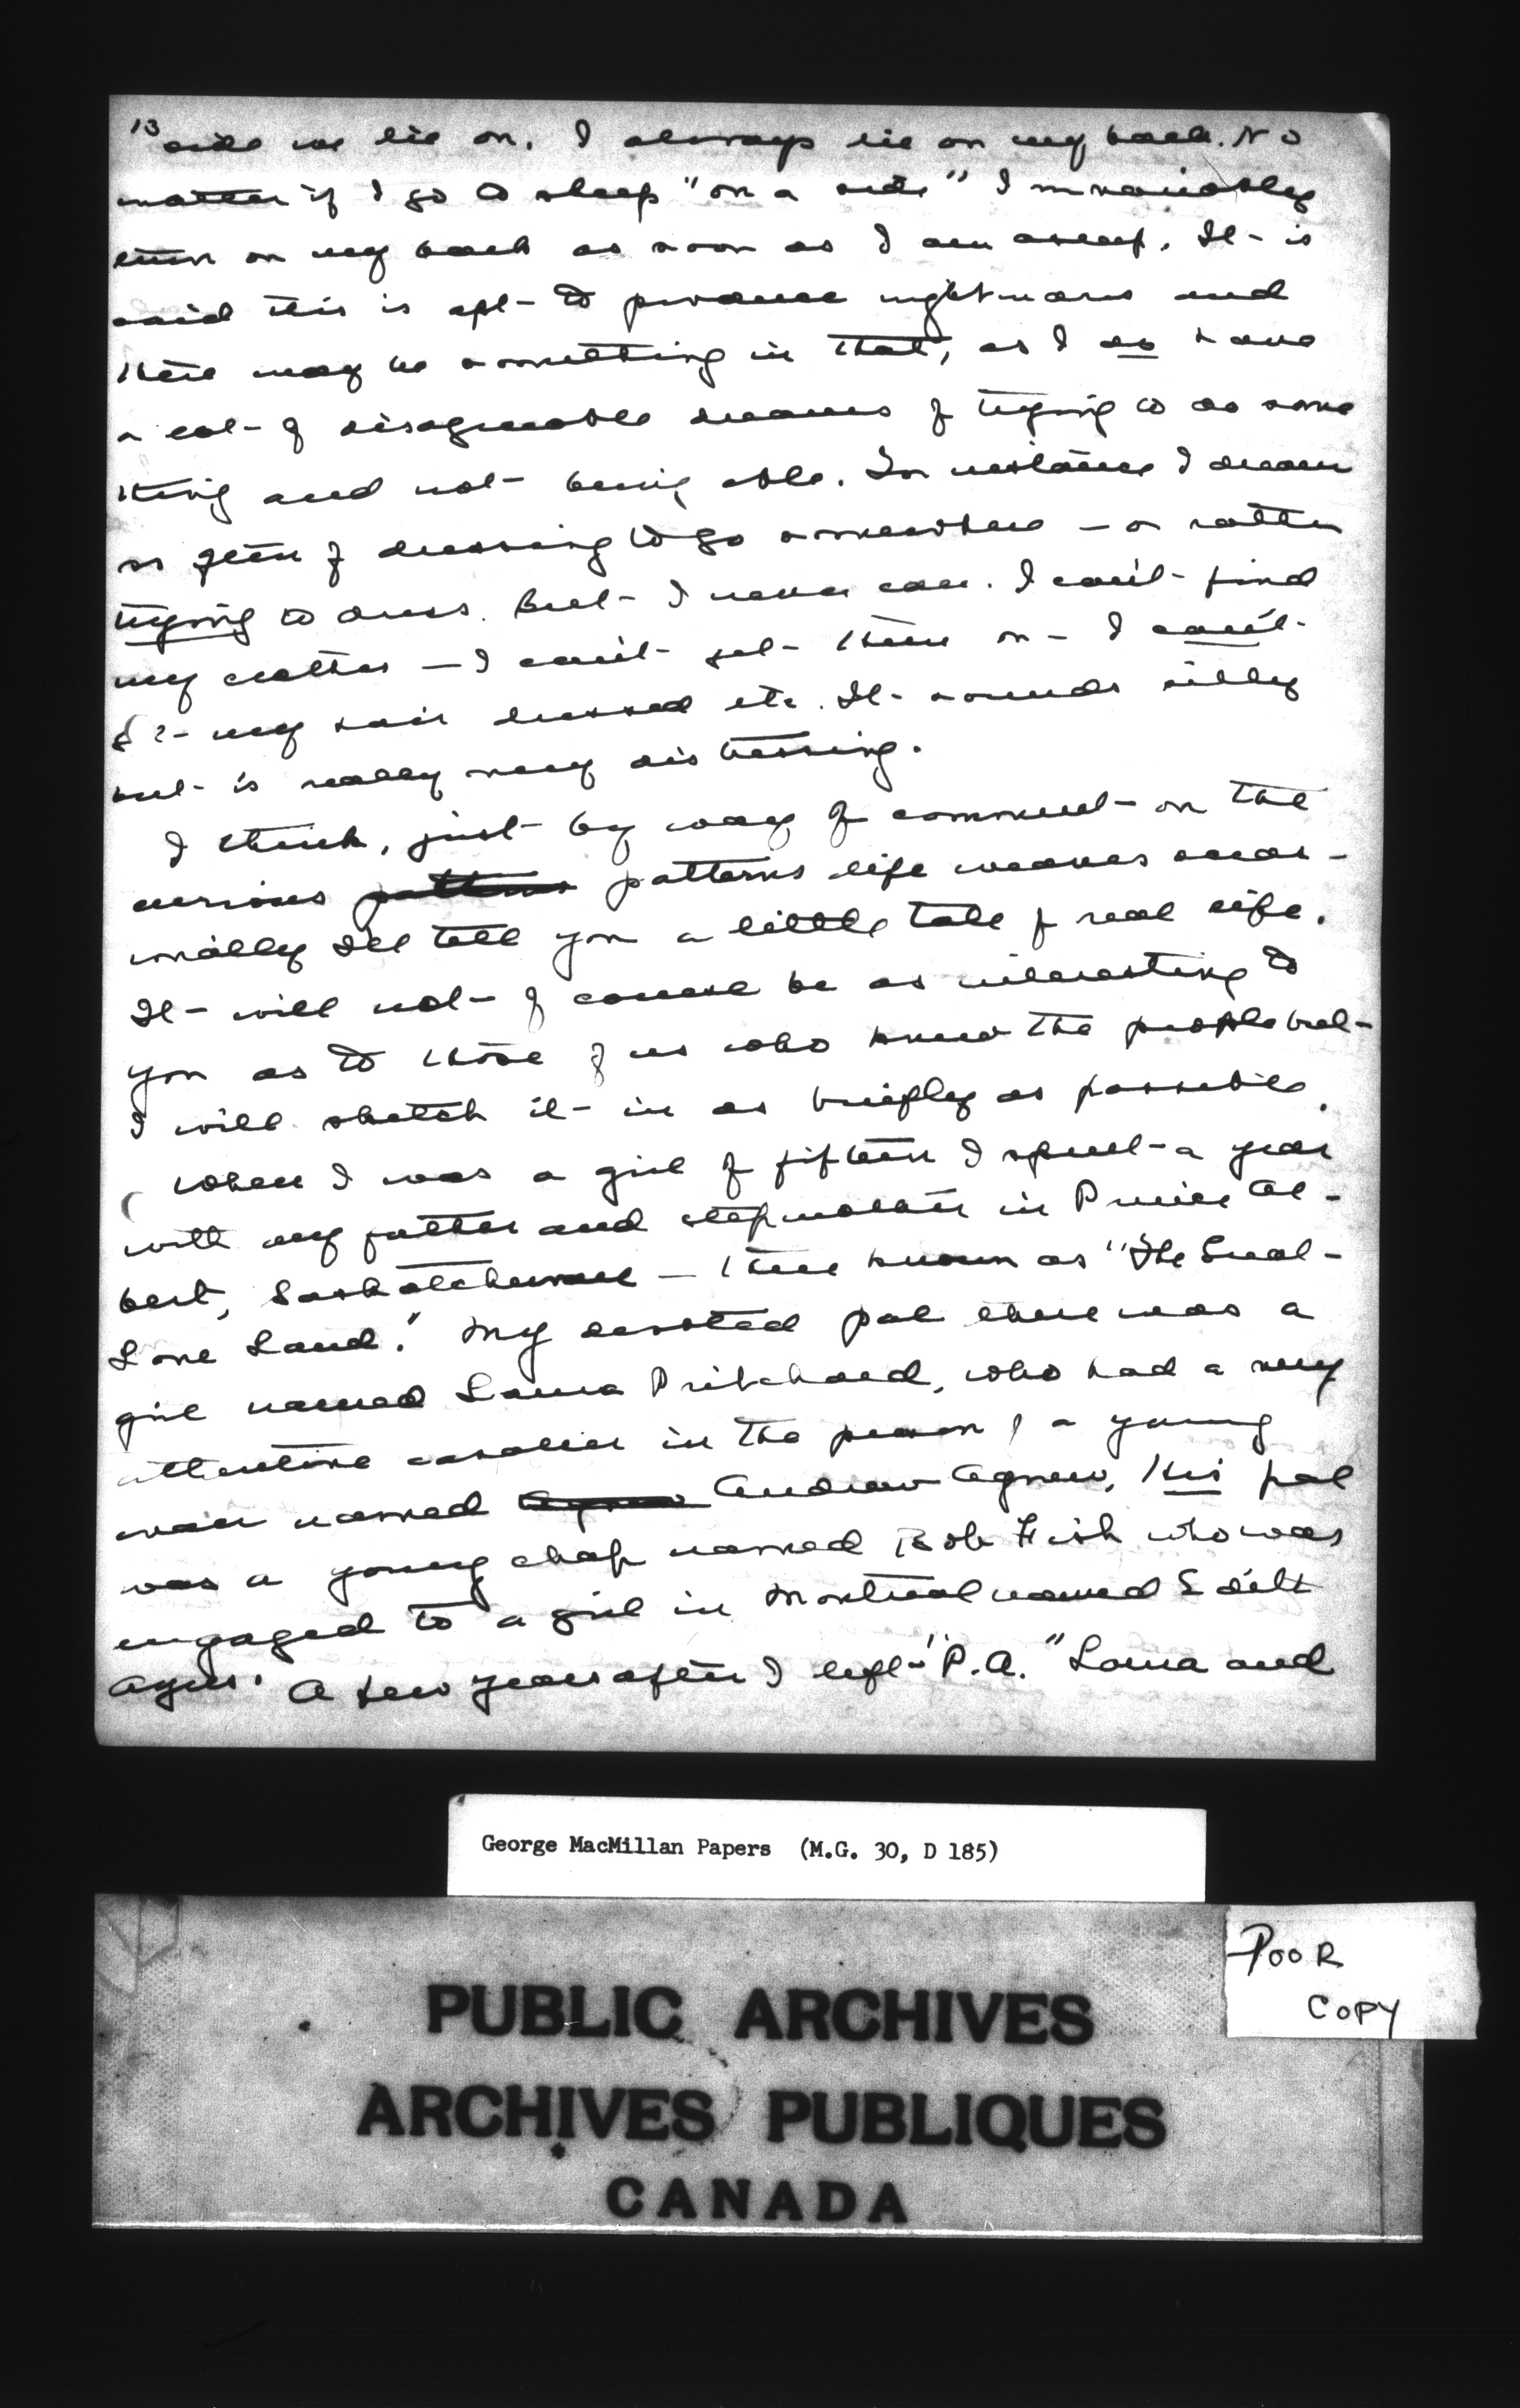 13
side we lie on. I always lie on my back. No
matter if I go to sleep "on a side" I invariably
turn on my back as soon as I am asleep. It is
said this is apt to produce nightmares and
there may be something in that, as I do have
a lot of disagreeable dreams of trying to do some
thing and not being able. For instance I dream
so often of dressing to go somewhere — or rather
trying to dress. But I never can. I can't find
my clothes — I can't get them on — I can't
get my hair dressed etc. It sounds silly
but is really very distressing.
I think, just by way of comment on the
curious patterns patterns life weaves occas-
ionally I'll tell you a little tale of real life.
It will not of course be as interesting to
you as to those of us who knew the people but
I will sketch it in as briefly as possible.
When I was a girl of fifteen I spent a year
with my father and stepmother in Prince Al-
bert, Saskatchewan — then known as "The Great
Lone Land." My devoted pal there was a
girl named Laura Pritchard, who had a very
attentive cavalier in the person of a young
man named Agnew Andrew Agnew. His pal
was a young chap named Bob Fish who was
engaged to a girl in Montreal named Edith
A few years after I left "P.A." Laura and
George MacMillan Papers (M.G. 30, D 185)
POOR
COPY
PUBLIC ARCHIVES
ARCHIVES PUBLIQUES
CANADA